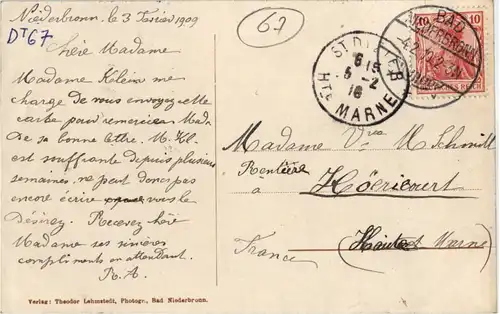 Niederbronn, le 3 Février 1909
67
DT67
Chère Madame
Madame Klein me
charge de vous envoyer cette
carte pour remercier Mad.
de sa bonne lettre. M. Kl.
est souffrante depuis plusieurs
semaines, ne peut donc pas
encore écrire vous le
désirez. Recevez chère
Madame ses sincères
compliments en attendant.
R. A.
Verlag: Theodor Lehmstedt, Photogr., Bad Niederbronn.
ST DIZIER
5 -2
HTE MARNE
BAD
NIEDERBRONN
10 10
Madame Vve M Schmitt
Rentière
à Héricourt
Haute Marne
France